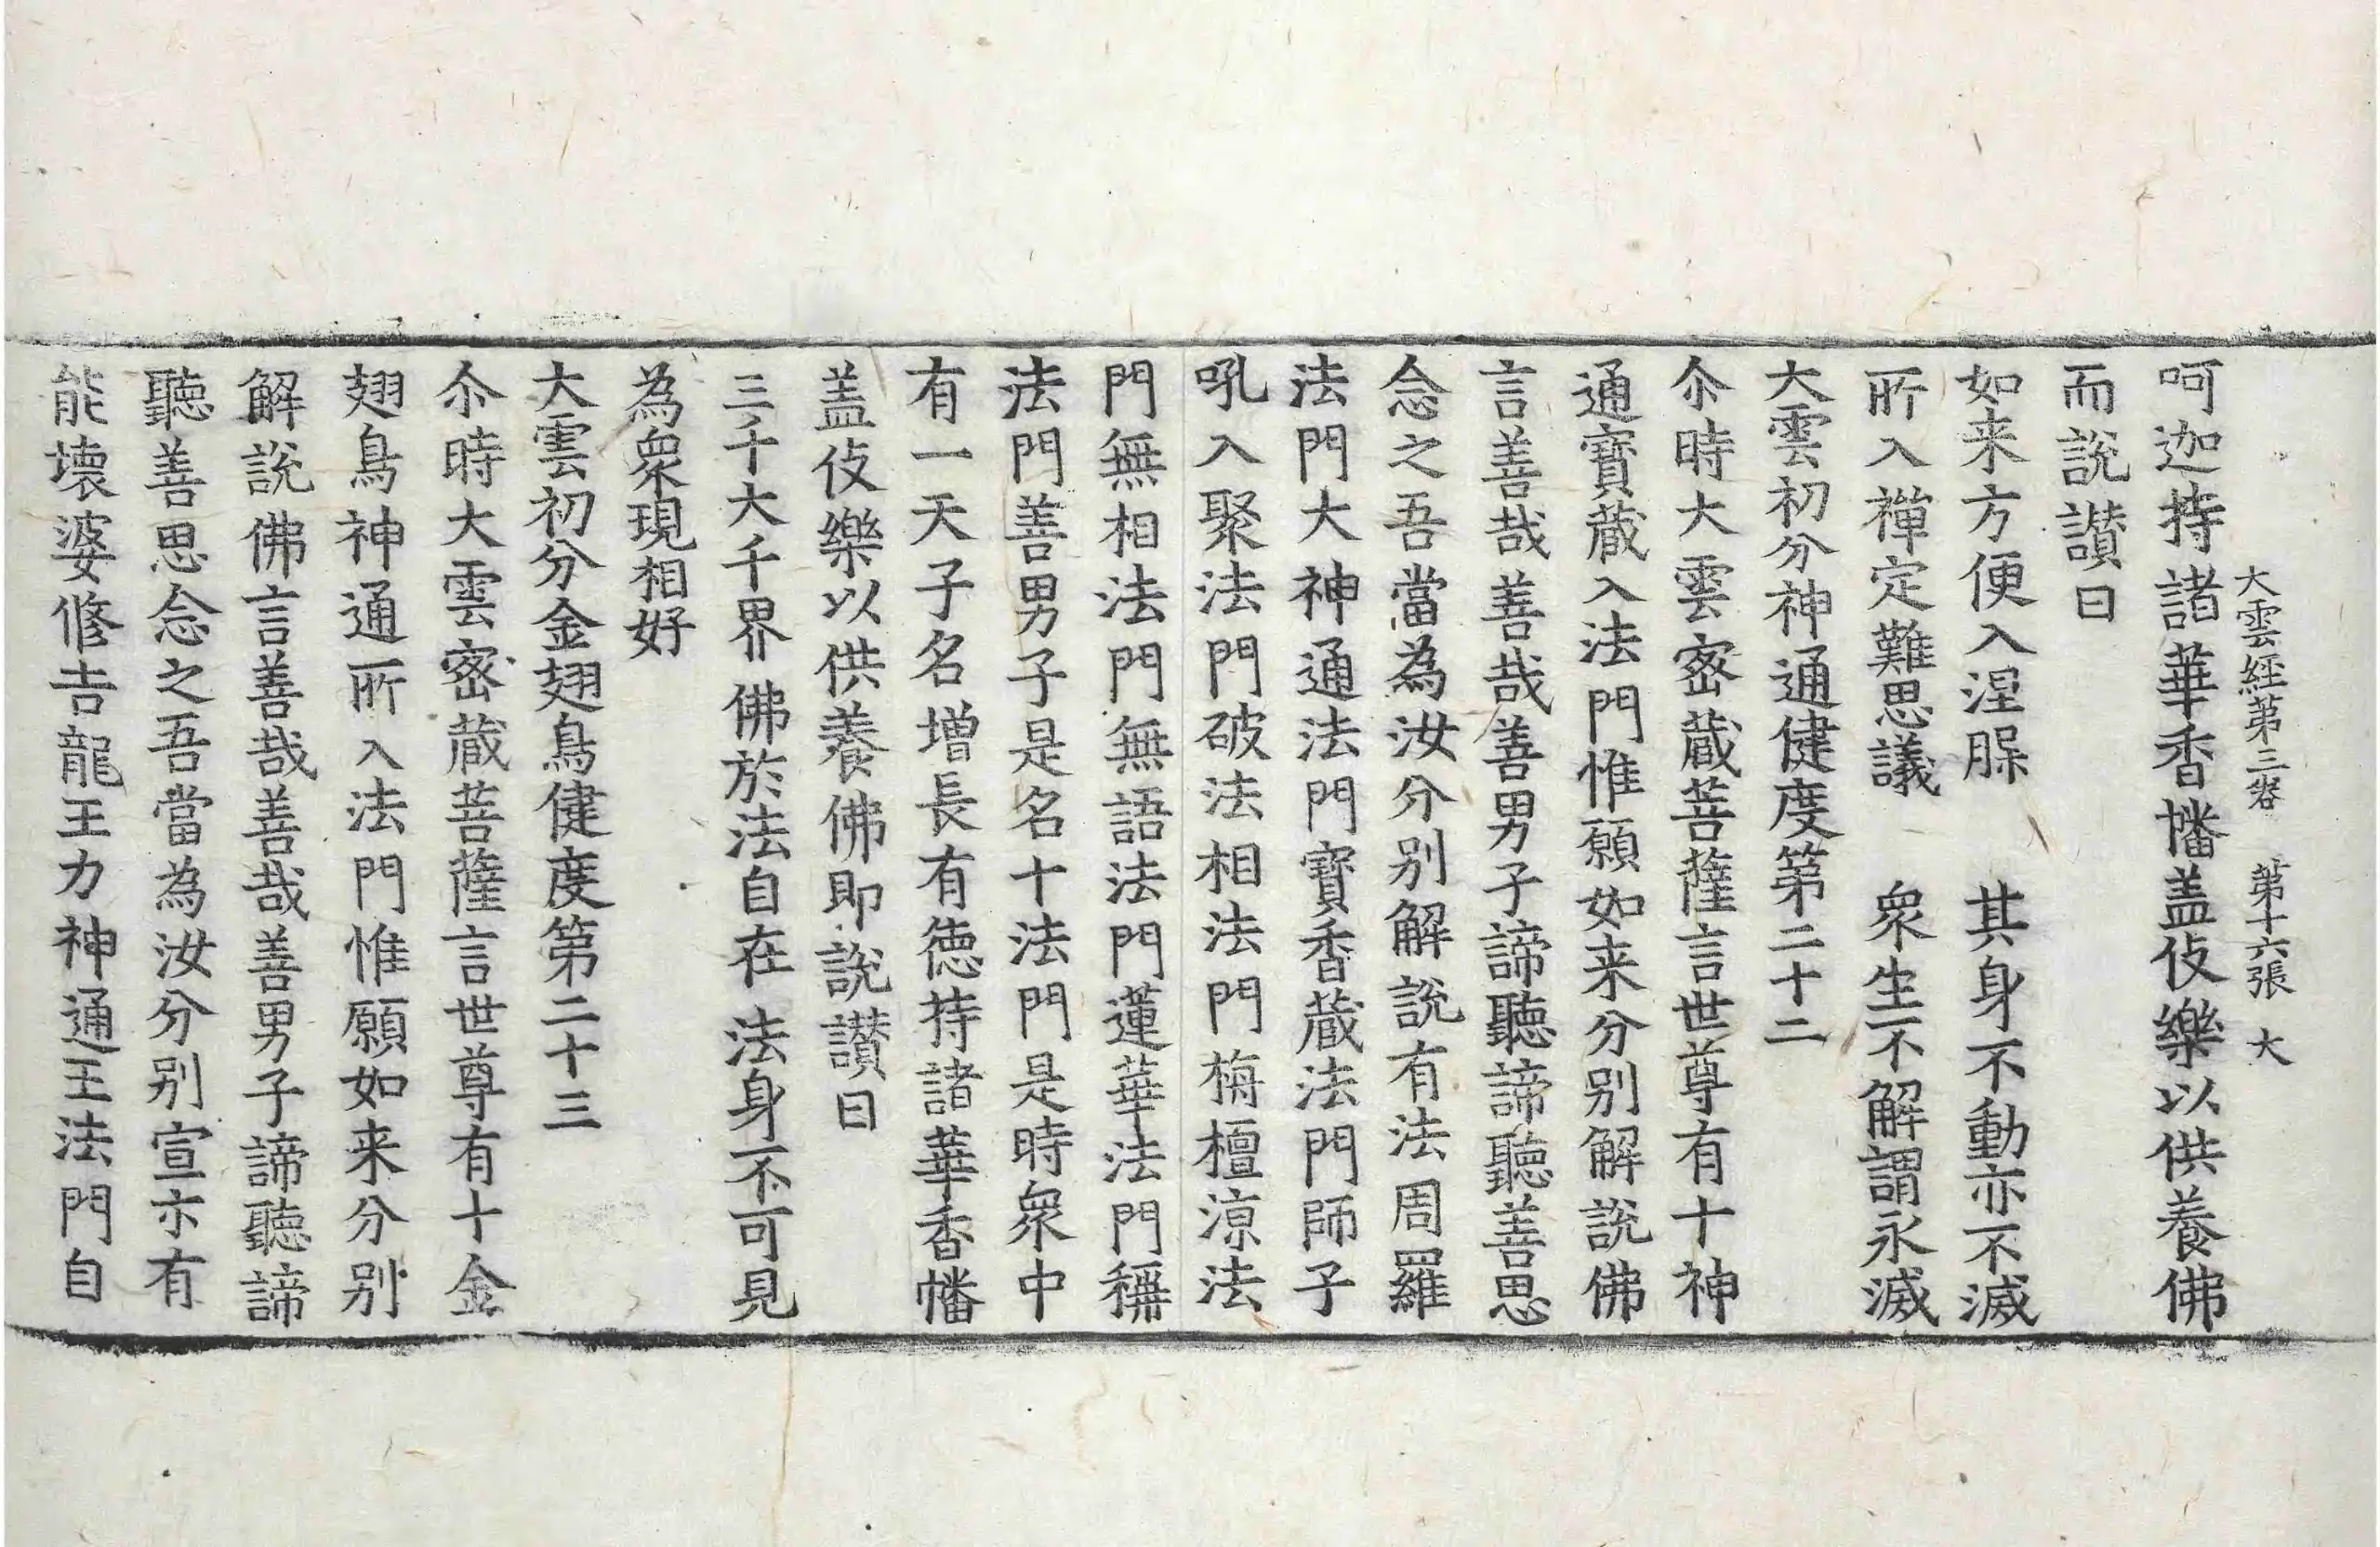 大雲經第三卷 第十六張 大
呵迦持諸華香幡盖伎樂以供養佛
而說讃曰
如来方便入涅槃 其身不動亦不滅
所入禪定難思議 衆生不解謂永滅
大雲初分神通健度第二十二
尒時大雲密蔵菩薩言世尊有十神
通寶蔵入法門惟願如来分别解說佛
言善哉善哉善男子諦聽諦聽善思
念之吾當為汝分别解說有法周羅
法門大神通法門寶香蔵法門師子
吼入聚法門破法相法門栴檀涼法
門無相法門無語法門蓮華法門穪
法門善男子是名十法門是時衆中
有一天子名增長有德持諸華香幡
盖伎樂以供養佛即說讃曰
三千大千界佛於法自在法身不可見
為衆現相好
大雲初分金翅鳥健度第二十三
尒時大雲密蔵菩薩言世尊有十金
翅鳥神通所入法門惟願如来分别
解說佛言善哉善哉善男子諦聽諦
聽善思念之吾當為汝分别宣示有
能壞婆修吉龍王力神通王法門自